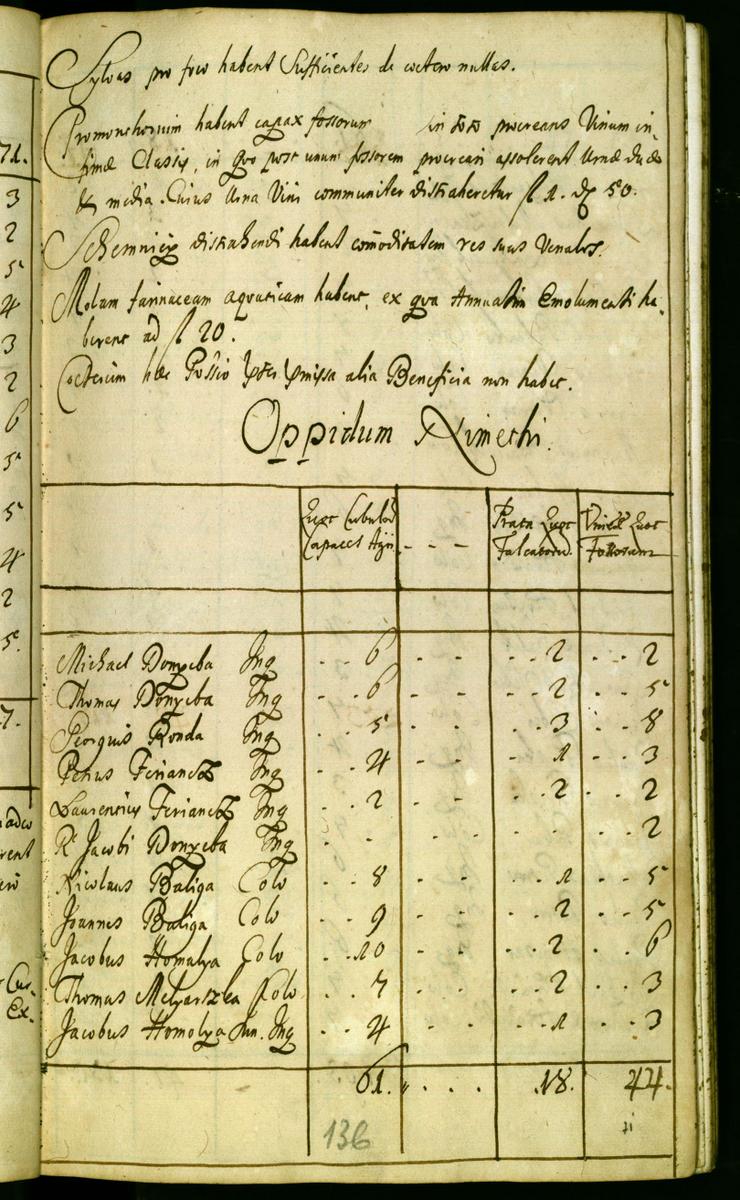 71.
3
2
5
4
3
2
6
5
5
4
2
5.
7.
Sylvas pro foco habent Sufficientes de coetero nullas.
Promonthorium habent capax fossorum in toto procreans Vinum in,
fimae Classis, in quo post unum fossorem procreari assolerent Urnae duae
& media. Cuius Urna Vini communiter distraheretur fl 1. d 50.
Schemnicii distrahendi habent comoditatem res suas Venales.
Molam farinaceam aquaticam habent, ex qua Annuatim Emolumenti ha,
berent ad fl 20.
Coeterum haec Possio alia Beneficia non habet.
Oppidum Nimethi.
Cubulos Capaces Agri - - - Prata Falcatorum Vineae Fossorum
Michael Donyeba Inq . . 6 . - . . 2 . . 2
Thomas Donyeba Inq . . 6 - - . . 2 . . 5
Georgius Ronda Inq . . 5 - - . . 3 . . 8
Petrus Feriancz Inq . . 4 . . . . 1 . . 3
Laurentius Feriancz Inq . . 2 . . . . 2 . . 2
R Jacobi Donyeba Inq . . . . . . . 2
Nicolaus Baliga Colo . . 8 - - . . 1 . . 5
Joannes Baliga Colo . . 9 - - . . 2 . . 5
Jacobus Homolya Colo . . 10 - - . . 2 . . 6
Thomas Melyarszka Colo . . 7 - - . . 2 . . 3
Jacobus Homolya Jun. Inq . . 4 - - . . 1 . . 3
61. . . . 18. 44.
136